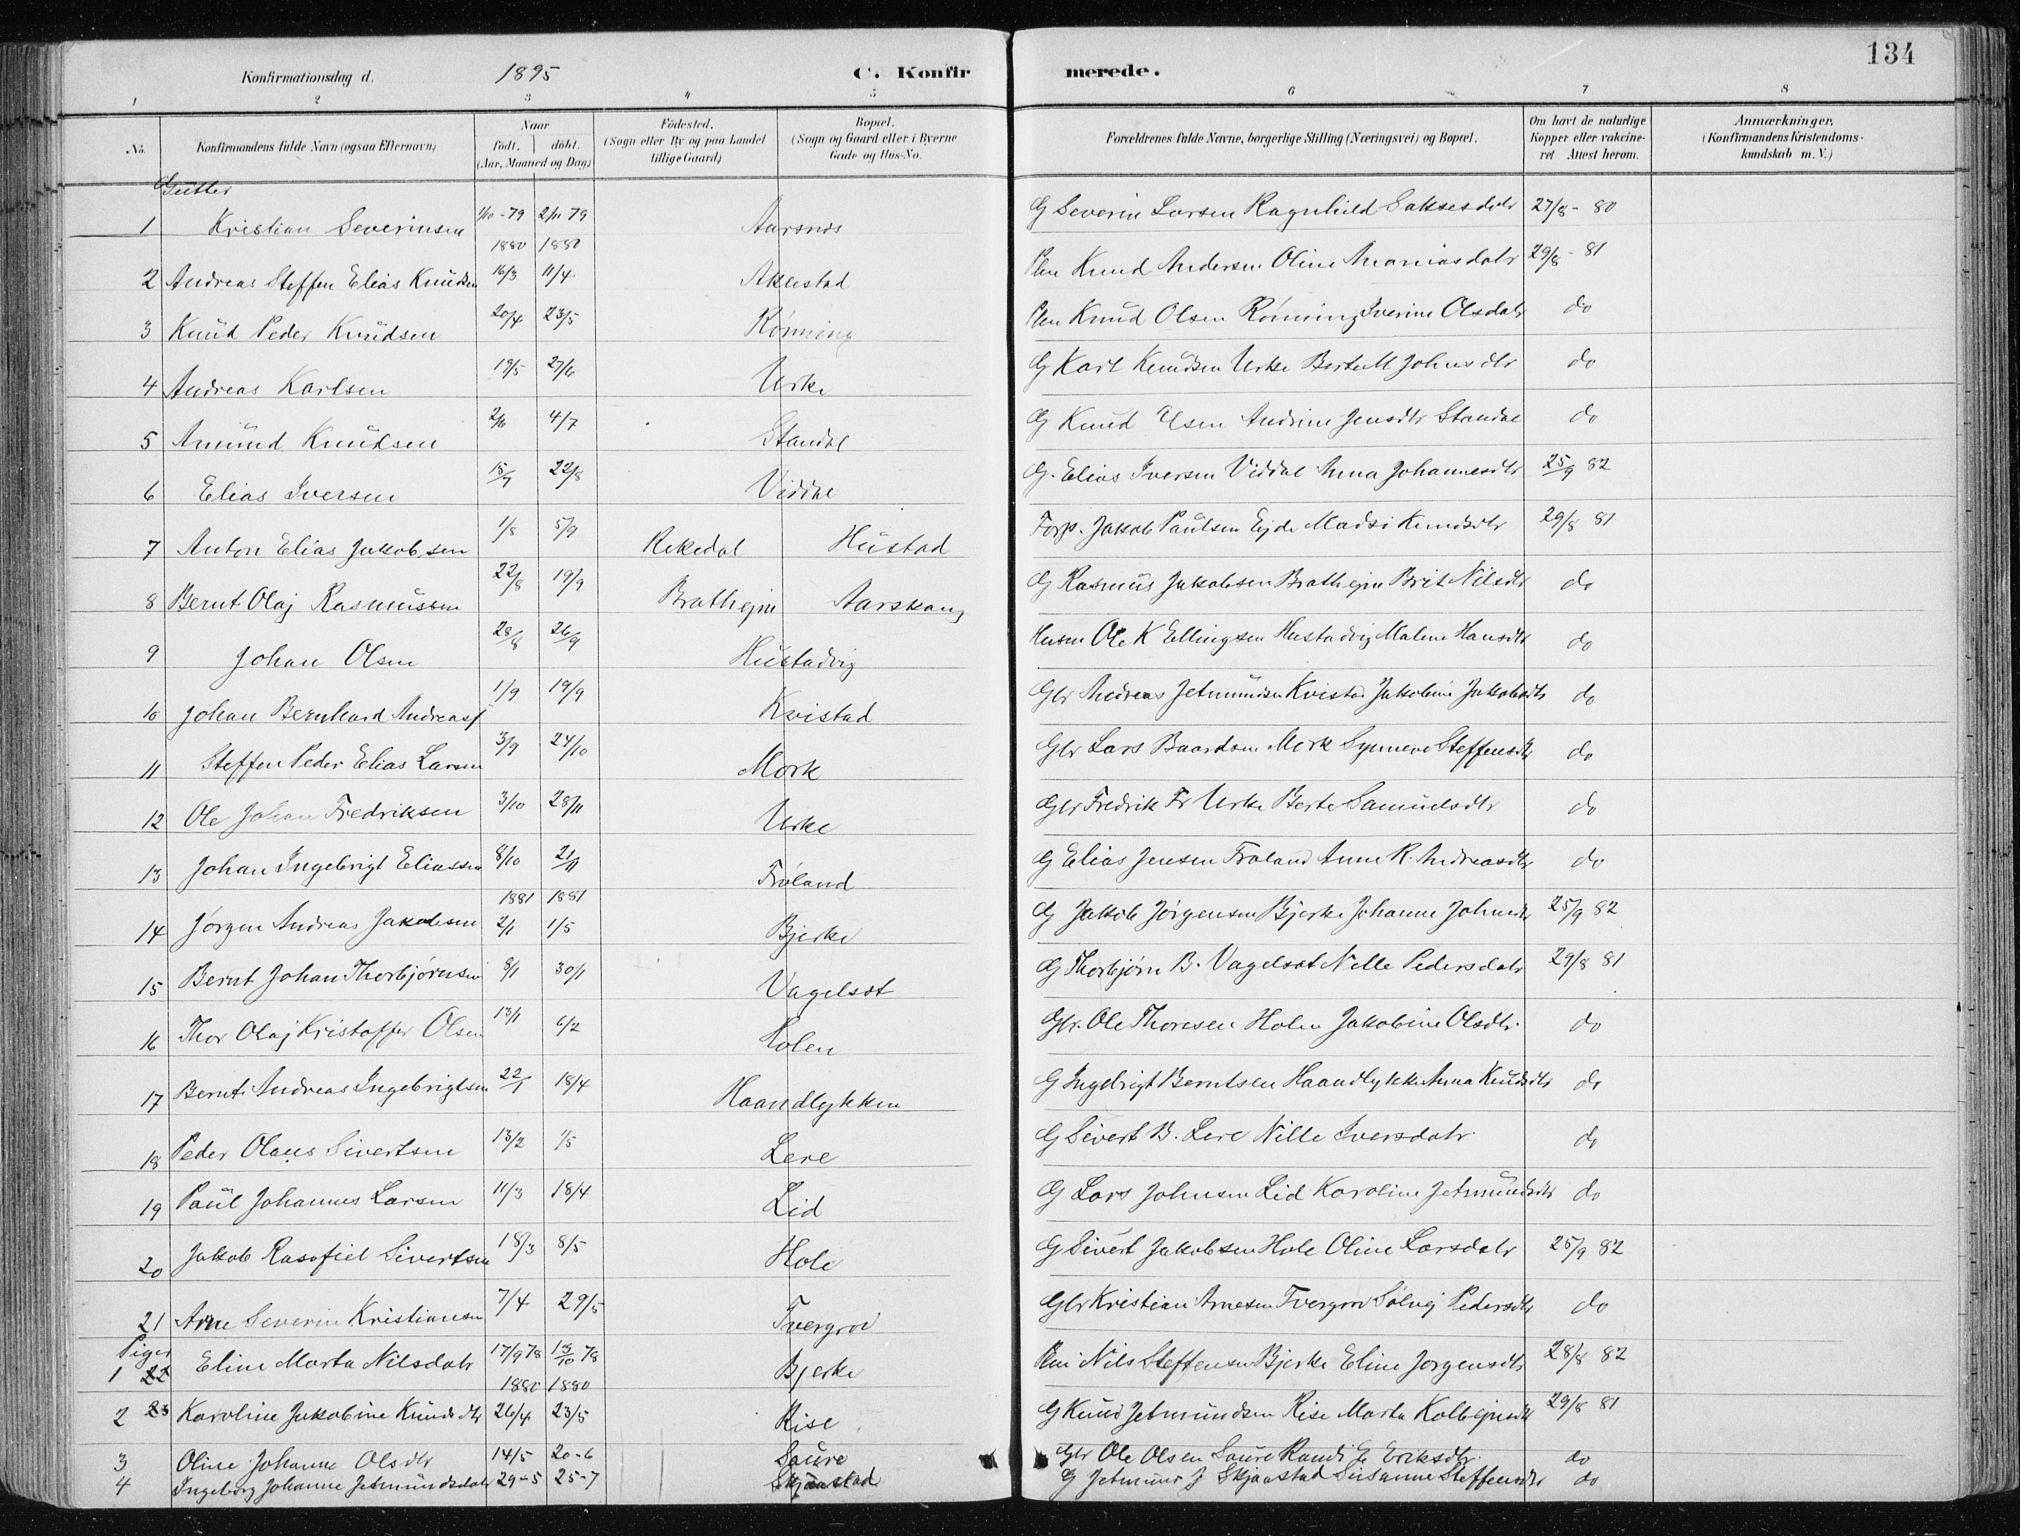 134
Konfirmationsdag d. 1895 C. Konfirmerede.
1 2 3 4 5 6 7 8
No. Konfirmandens fulde Navn (ogsaa Efternavn) Naar født. døbt. (Aar, Maaned og Dag) Fødested. (Sogn eller By og paa Landet tillige Gaard) Bopæl. (Sogn og Gaard eller i Byerne Gade og Hus-No. Forældrenes fulde Navne, borgerlige Stilling (Næringsvei) og Bopæl. Om havt de naturlige Kopper eller vakcineret Attest herom. Anmærkninger, (Konfirmandens Kristendomskundskab m. V.)
Gutter
1 Kristian Severinsen 1/10-79 2/11 79 Aarsnes G Severin Larsen Ragnhild Saksesdatr 27/8-80
1880 1880
2 Andreas Steffen Elias Knudsen 16/3 11/4 Aknestad Pen Knud Andersen Oline Ananiasdatr 29/8-81
3 Knud Peder Knudsen 20/4 23/5 Rønning Pen Knud Olsen Rønning Iverine Olsdatr do
4 Andreas Karlsen 19/5 27/6 Urke G Karl Knudsen Urke Berte M Johnsdtr do
5 Amund Knudsen 2/6 4/7 Standal G Knud Olsen Andrine Jensdtr Standal do
6 Elias Iversen 15/7 22/8 Viddal G. Elias Iversen Viddal Anna Johannesdtr 25/9 82
7 Anton Elias Jakobsen 1/8 5/9 Rekedal Hustad Forp. Jakob Paulsen Eide Madsi Knudsdtr 29/8 81
8 Bernt Olaj Rasmussen 22/8 19/9 Brathejn Aarskaug G Rasmus Jakobsen Brathejn Brit Nilsdtr do
9 Johan Olsen 28/8 26/9 Hustadvig Husm Ole K Ellingsen Hustadvig Malene Hansdtr do
10 Johan Bernhard Andreasf 1/9 19/9 Kvistad Gbr Andreas Jetmundsen Kvistad Jakobine Jakobsdtr do
11 Steffen Peder Elias Larsen 3/9 24/10 Mork Gbr Lars Baardsen Mork Synneve Steffensdtr do
12 Ole Johan Fredriksen 3/10 28/11 Urke Gbr Fredrik Fr Urke Berte Samuelsdtr do
13 Johan Ingebrigt Eliassen 8/10 21/11 Frøland G Elias Jensen Frøland Anne R. Andreasdtr do
1881 1881
14 Jørgen Andreas Jakobsen 2/1 1/5 Bjerke G Jakob Jørgensen Bjerke Johanne Johnsdtr 25/9 82
15 Bernt Johan Thorbjørnsen 8/1 30/1 Vagelsæt G Thorbjørn B. Vagelsæt Nelle Pedersdatr 29/8 81
16 Thor Olaj Kristoffer Olsen 13/1 6/2 Holen Gbr. Ole Thoresen Holen Jakobine Olsdtr. do
17 Bernt Andreas Ingebrigtsen 22/1 18/4 Haandlykken G Ingebrigt Berntsen Haandlykken Anna Knudsdtr do
18 Peder Olaus Sivertsen 13/2 1/5 Lere G Sivert B. Lere Nille Iversdatr do
19 Paul Johannes Larsen 11/3 18/4 Lid G Lars Johnsen Lid Karoline Jetmundsdtr do
20 Jakob Rasofiel Sivertsen 18/3 8/5 Hole G Sivert Jakobsen Hole Oline Larsdatr 25/9 82
21 Arne Severin Kristiansen 7/4 29/5 Tvergroi Gbr Kristian Arnesen Tvergroi Solvej Pedersdtr do
Piger
1 22 Eline Marta Nilsdatr 17/9 78 13/10 78 Bjerke Pen Nils Steffensen Bjerke Eline Jørgensdtr 28/8 82
1880 1880
2 23 Karoline Jakobine Knudsdtr 26/4 23/5 Rise G Knud Jetmundsen Rise Marta Kolbejnsdtr 29/8 81
3 Oline Johanne Olsdtr 14/5 20-6 Saure Gbr Ole Olsen Saure Randi E Eriksdtr. do
4 Ingeborg Johanne Jetmundsdatr 29-5 25-7 Skjaastad G Jetmund J Skjaastad Susanne Steffensdtr do